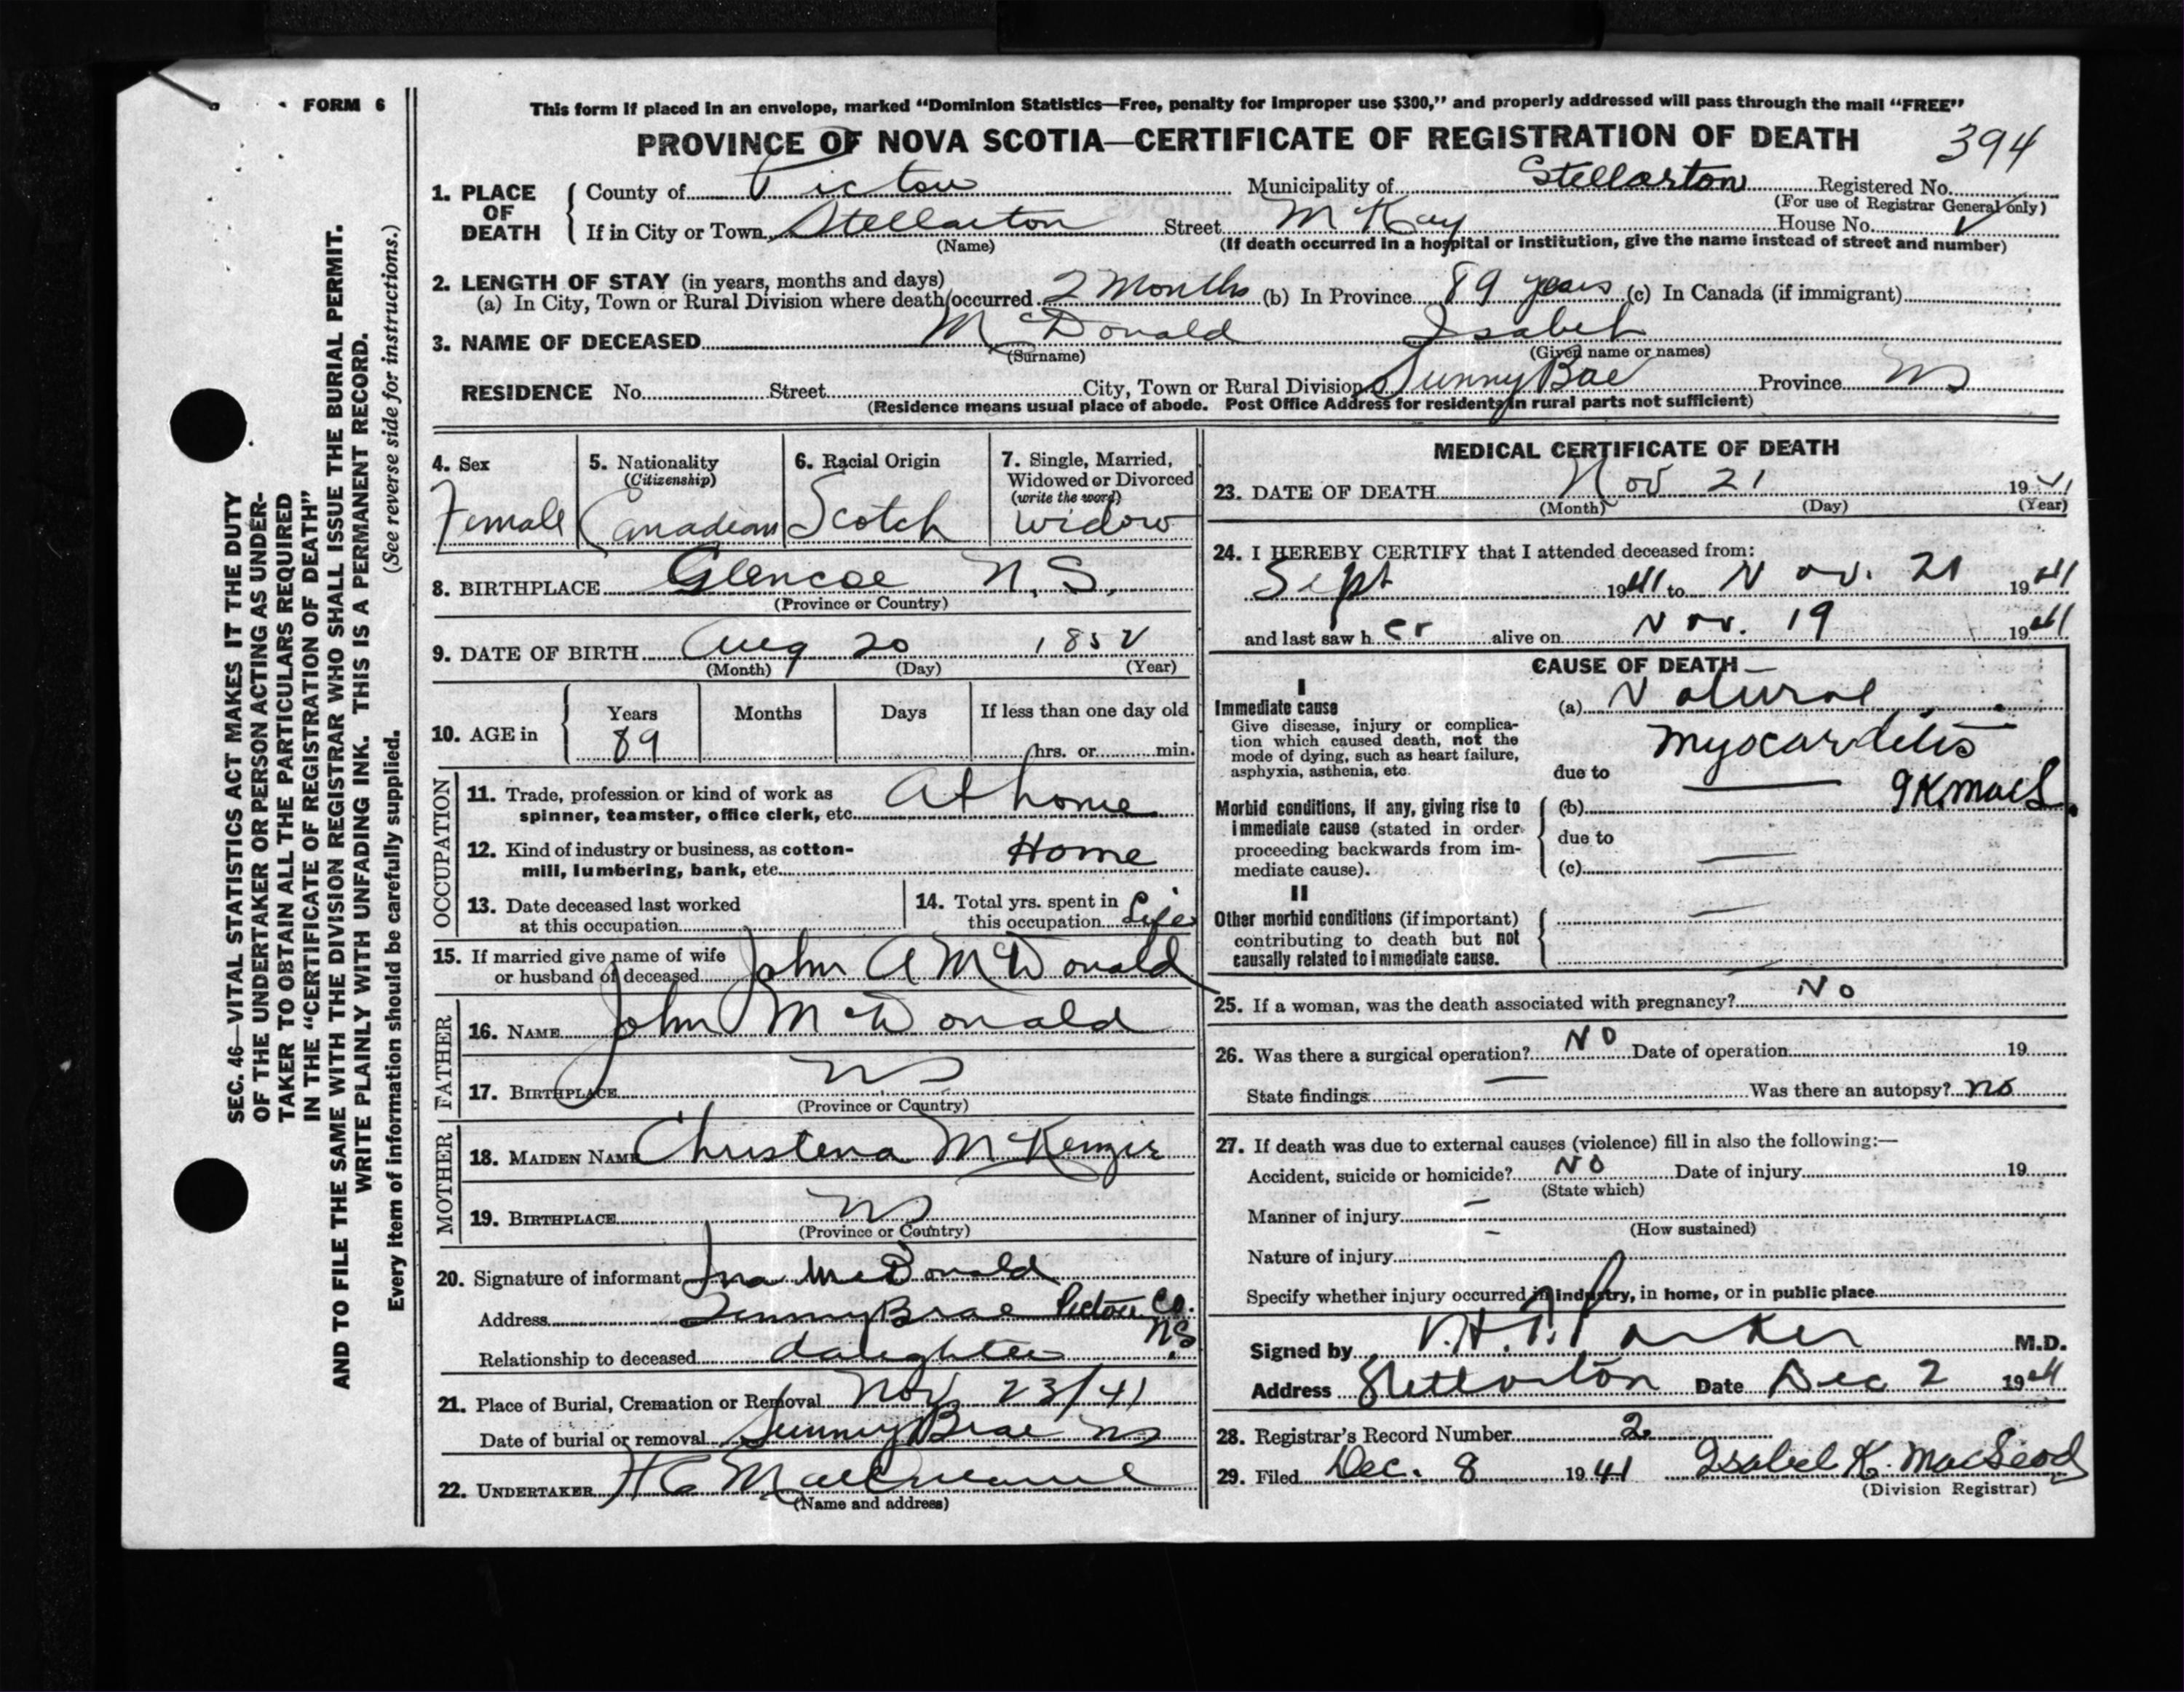 FORM 6
This form if placed in an envelope, marked “Dominion Statistics—Free, penalty for improper use $300,” and properly addressed will pass through the mail “FREE”
PROVINCE OF NOVA SCOTIA—CERTIFICATE OF REGISTRATION OF DEATH
394
1. PLACE OF DEATH
County of Pictou Municipality of Stellarton Registered No.
(For use of Registrar General only)
If in City or Town Stellarton Street McKay House No.
(Name)
(If death occurred in a hospital or institution, give the name instead of street and number)
2. LENGTH OF STAY (in years, months and days)
(a) In City, Town or Rural Division where death occurred 2 Months (b) In Province 89 years (c) In Canada (if immigrant)
3. NAME OF DECEASED McDonald Isabel
(Surname) (Given name or names)
RESIDENCE No. Street City, Town or Rural Division Sunny Bae Province NS
(Residence means usual place of abode. Post Office Address for residents in rural parts not sufficient)
4. Sex
Female
5. Nationality
(Citizenship)
Canadian
6. Racial Origin
Scotch
7. Single, Married,
Widowed or Divorced
(write the word)
Widow
8. BIRTHPLACE Glencoe N.S.
(Province or Country)
9. DATE OF BIRTH Aug 20 1852
(Month) (Day) (Year)
10. AGE in
Years Months Days If less than one day old
89 hrs. or min.
OCCUPATION
11. Trade, profession or kind of work as
spinner, teamster, office clerk, etc. At home
12. Kind of industry or business, as cotton-
mill, lumbering, bank, etc. Home
13. Date deceased last worked
at this occupation
14. Total yrs. spent in
this occupation Life
15. If married give name of wife
or husband of deceased John A McDonald
FATHER
16. NAME John McDonald
17. BIRTHPLACE NS
(Province or Country)
MOTHER
18. MAIDEN NAME Christena McKenzie
19. BIRTHPLACE NS
(Province or Country)
20. Signature of informant Ina McDonald
Address Sunny Brae Pictou Co. N.S
Relationship to deceased daughter
21. Place of Burial, Cremation or Removal Nov 23/41
Date of burial or removal Sunny Brae NS
22. UNDERTAKER
(Name and address)
MEDICAL CERTIFICATE OF DEATH
23. DATE OF DEATH Nov 21 1941
(Month) (Day) (Year)
24. I HEREBY CERTIFY that I attended deceased from:
Sept 1941 to Nov. 21 1941
and last saw her alive on Nov. 19 1941
CAUSE OF DEATH
I
Immediate cause
Give disease, injury or complica-
tion which caused death, not the
mode of dying, such as heart failure,
asphyxia, asthenia, etc.
(a) Natural
Myocarditis
due to
Morbid conditions, if any, giving rise to
immediate cause (stated in order
proceeding backwards from im-
mediate cause).
(b) I K. MacL.
due to
(c)
II
Other morbid conditions (if important)
contributing to death but not
causally related to immediate cause.
25. If a woman, was the death associated with pregnancy? No
26. Was there a surgical operation? NO Date of operation 19
State findings — Was there an autopsy? no
27. If death was due to external causes (violence) fill in also the following:—
Accident, suicide or homicide? NO Date of injury 19
(State which)
Manner of injury –
(How sustained)
Nature of injury –
Specify whether injury occurred in industry, in home, or in public place
Signed by Parker M.D.
Address Stellarton Date Dec 2 1941
28. Registrar's Record Number 2
29. Filed Dec. 8 1941 Isabel K. MacLeod
(Division Registrar)
SEC. 46—VITAL STATISTICS ACT MAKES IT THE DUTY
OF THE UNDERTAKER OR PERSON ACTING AS UNDER-
TAKER TO OBTAIN ALL THE PARTICULARS REQUIRED
IN THE “CERTIFICATE OF REGISTRATION OF DEATH”
AND TO FILE THE SAME WITH THE DIVISION REGISTRAR WHO SHALL ISSUE THE BURIAL PERMIT.
WRITE PLAINLY WITH UNFADING INK. THIS IS A PERMANENT RECORD.
Every item of information should be carefully supplied. (See reverse side for instructions.)